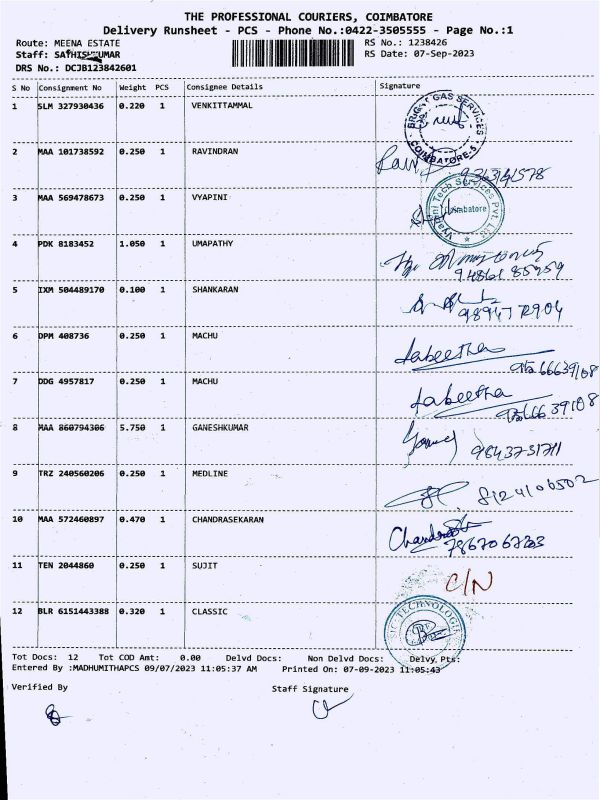 THE PROFESSIONAL COURIERS, COIMBATORE
Delivery Runsheet - PCS - Phone No.:0422-3505555 - Page No.:1
Route: MEENA ESTATE RS No.: 1238426
Staff: SATHISHKUMAR RS Date: 07-Sep-2023
DRS No.: DCJB123842601
S No Consignment No Weight PCS Consignee Details Signature
1 SLM 327930436 0.220 1 VENKITTAMMAL
GAS SERVICES
COIMBATORE-5
2 MAA 101738592 0.250 1 RAVINDRAN
3 MAA 569478673 0.250 1 VYAPINI
Vyapini Tech Services Pvt. Ltd
Coimbatore
4 PDK 8183452 1.050 1 UMAPATHY
94861 85959
5 IXM 504489170 0.100 1 SHANKARAN
6 DPM 408736 0.250 1 MACHU
Labeetha
7 DDG 4957817 0.250 1 MACHU
Labeetha
8 MAA 860794306 5.750 1 GANESHKUMAR
9843731711
9 TRZ 240560206 0.250 1 MEDLINE
8124106502
10 MAA 572460897 0.470 1 CHANDRASEKARAN
7867067203
11 TEN 2044860 0.250 1 SUJIT
C/N
12 BLR 6151443388 0.320 1 CLASSIC
Tot Docs: 12 Tot COD Amt: 0.00 Delvd Docs: Non Delvd Docs: Delvy Pts:
Entered By :MADHUMITHAPCS 09/07/2023 11:05:37 AM Printed On: 07-09-2023 11:05:43
Verified By Staff Signature